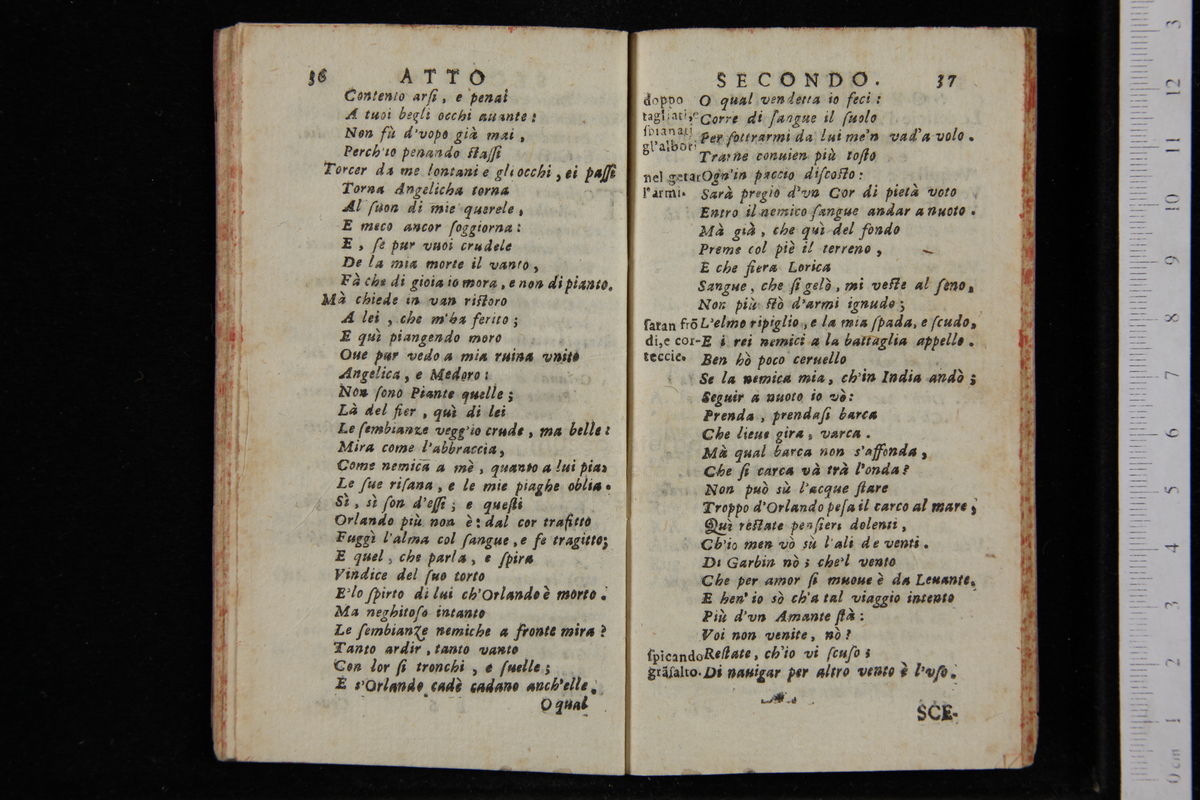 36 ATTO
Contento arſi, e penai
A tuoi begli occhi auante:
Non fù d'vopo già mai,
Perch'io penando ſtaſſi
Torcer da me lontani e gli occhi, ei paſſi
Torna Angelicha torna
Al ſuon di mie querele,
E meco ancor ſoggiorna:
E, ſe pur vuoi crudele
De la mia morte il vanto,
Fà che di gioia io mora, e non di pianto.
Mà chiede in van riſtoro
A lei, che m'ha ferito;
E quì piangendo moro
Oue pur vedo a mia ruina vnito
Angelica, e Medoro:
Non ſono Piante quelle;
Là del fier, quì di lei
Le ſembianze vegg'io crude, ma belle:
Mira come l'abbraccia,
Come nemica a mè, quanto a lui pia,
Le ſue riſana, e le mie piaghe oblia.
Sì, sì ſon d'eſſi; e queſti
Orlando più non è: dal cor trafitto
Fuggì l'alma col ſangue, e fe tragitto;
E quel, che parla, e ſpira
Vindice del ſuo torto
E'lo ſpirto di lui ch'Orlando è morto.
Ma neghitoſo intanto
Le ſembianze nemiche a fronte mira?
Tanto ardir, tanto vanto
Con lor ſi tronchi, e ſuelle;
E s'Orlando cadè cadano anch'elle.
O qual
SECONDO. 37
doppo O qual vendetta io feci:
tagliati, e Corre di ſangue il ſuolo
ſpianati Per ſottrarmi da lui me'n vad'a volo.
gl'albori
Trarne conuien più toſto
nel gettar Ogn'in paccio diſcoſto:
l'armi. Sarà pregio d'vn Cor di pietà voto
Entro il nemico ſangue andar a nuoto.
Mà già, che quì del fondo
Preme col piè il terreno,
E che fiera Lorica
Sangue, che ſi gelò, mi veſte al ſeno,
Non più ſtò d'armi ignudo;
faran frõ L'elmo ripiglio, e la mia ſpada, e ſcudo,
di, e cor- E i rei nemici a la battaglia appello.
teccie. Ben hò poco ceruello
Se la nemica mia, ch'in India andò;
Seguir a nuoto io vò:
Prenda, prendaſi barca
Che lieue gira, varca.
Mà qual barca non s'affonda,
Che ſi carca và trà l'onda?
Non può sù l'acque ſtare
Troppo d'Orlando peſa il carco al mare;
Quì reſtate penſieri dolenti,
Ch'io men vò sù l'ali de venti.
Di Garbin nò; che'l vento
Che per amor ſi muoue è da Leuante,
E ben' io sò ch'a tal viaggio intento
Più d'vn Amante ſtà:
Voi non venite, nò?
ſpicando Reſtate, ch'io vi ſcuſo;
grãſalto. Di nauigar per altro vento è l'vſo.
SCE-
0 cm 1 2 3 4 5 6 7 8 9 10 11 12 3